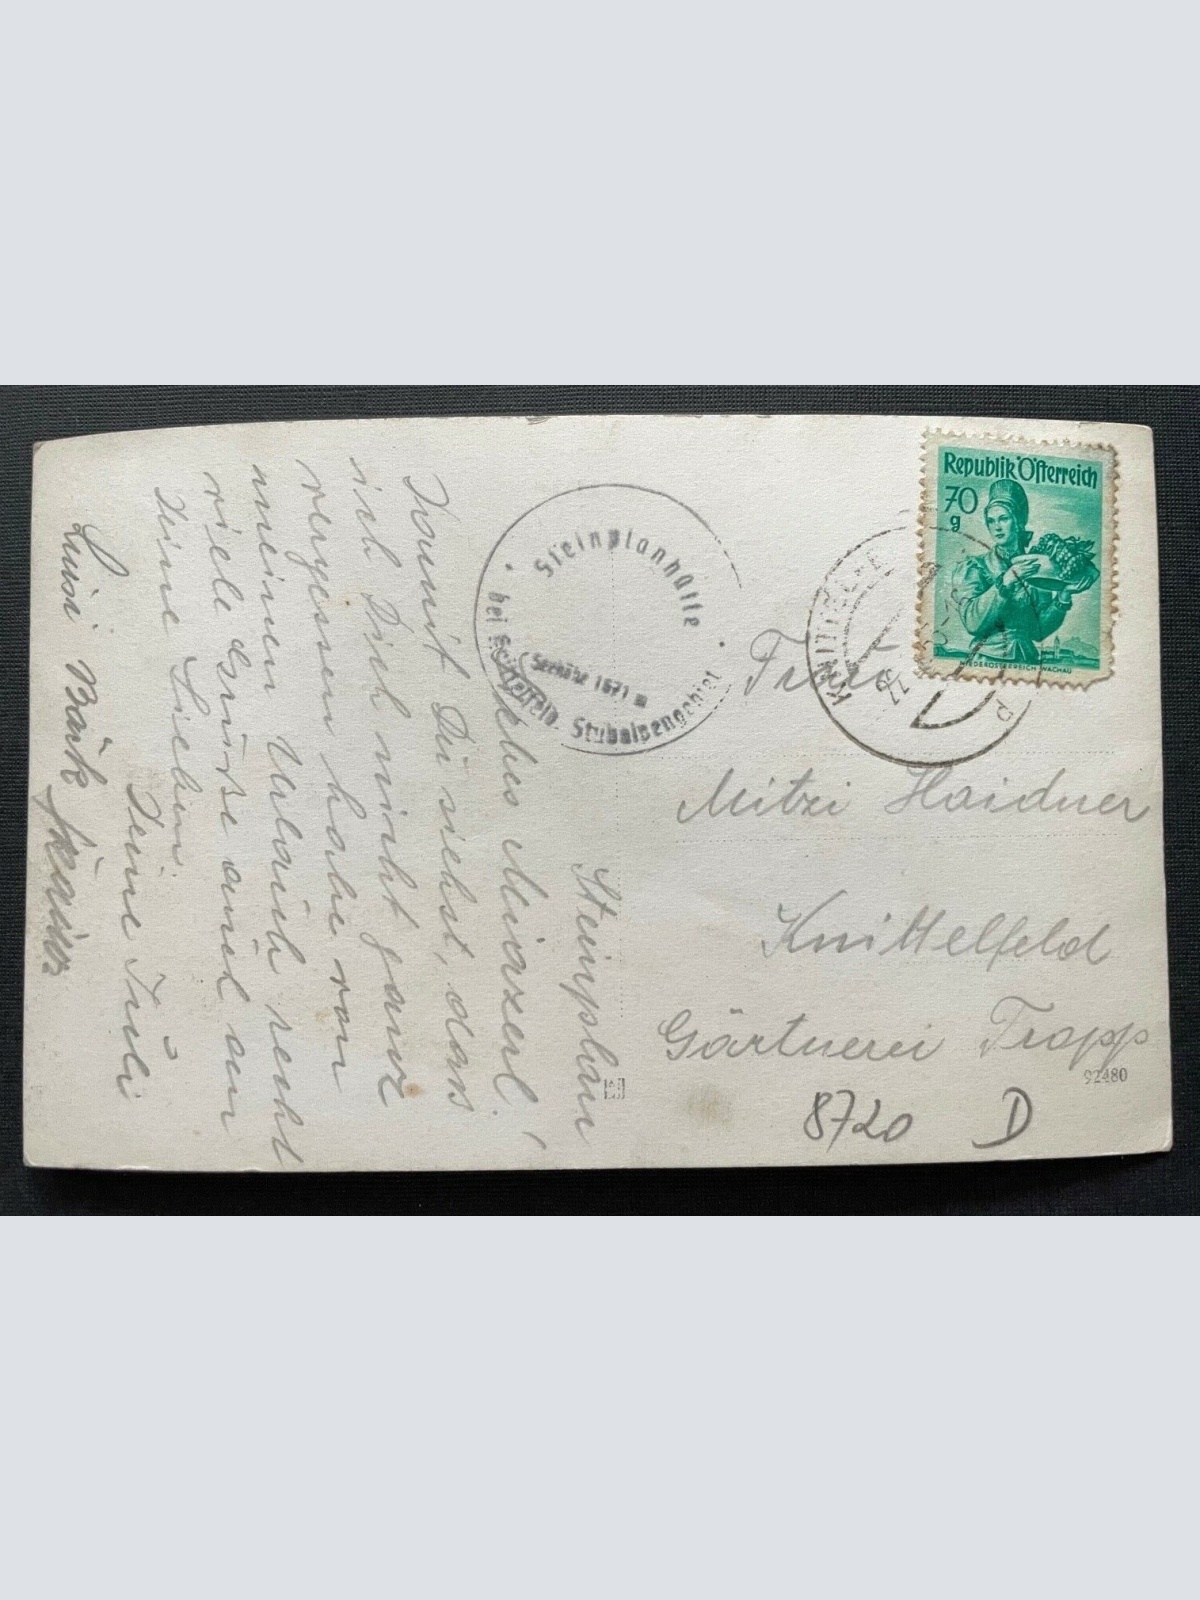 Steinplan
Liebes Mirzerl!
Damit Du siehst, dass
ich Dich nicht ganz
vergessen habe von
meinem Urlaub recht
viele Grüße auch an
Deine Lieben.
Deine Juli
Luisi
Steinplanhütte
bei Knittelfeld
Seehöhe 1671 m
Stubalpengebiet
KNITTELFELD
Republik Österreich
70
g
NIEDERÖSTERREICH WACHAU
Frau
Mitzi Haidner
Knittelfeld
Gärtnerei Tropp
92480
8720 D